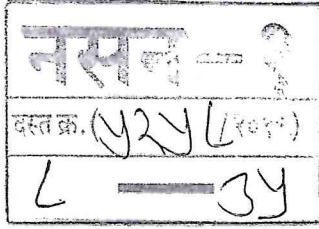 नसन - १
दस्त क्र. (५२५८/२०११)
८ — ३५